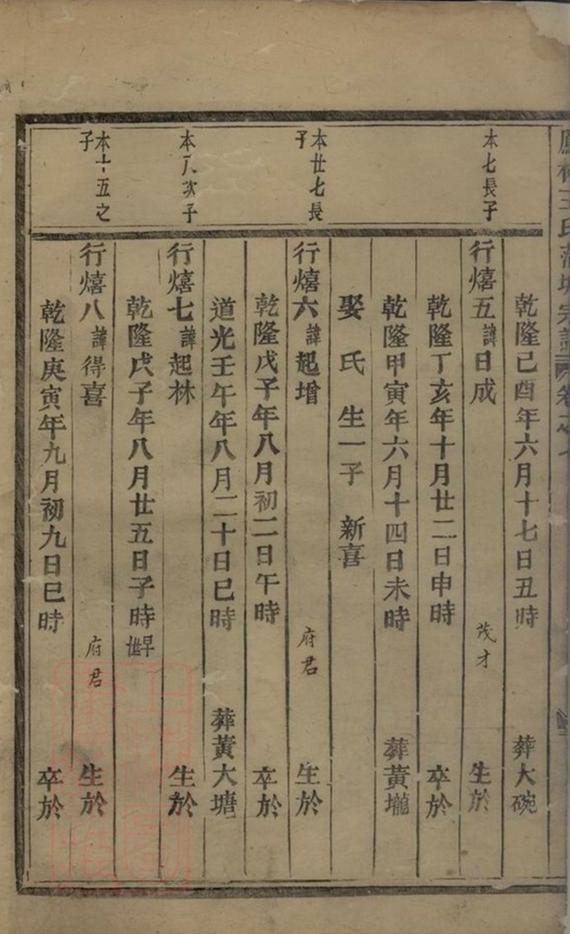 王氏 宗譜 卷之
乾隆己酉年六月十七日丑時 葬大碗
本七長子
行熺五諱日成 茂才 生於
乾隆丁亥年十月廿二日申時 卒於
乾隆甲寅年六月十四日未時 葬黃壠
娶氏生一子 新喜
本廿七長子
行熺六諱起增 府君 生於
乾隆戊子年八月初二日午時 卒於
道光壬午年八月二十日巳時 葬黃大塘
本八次子
行熺七諱起林 生於
乾隆戊子年八月廿五日子時 早世
本十五之子
行熺八諱得喜 府君 生於
乾隆庚寅年九月初九日巳時 卒於